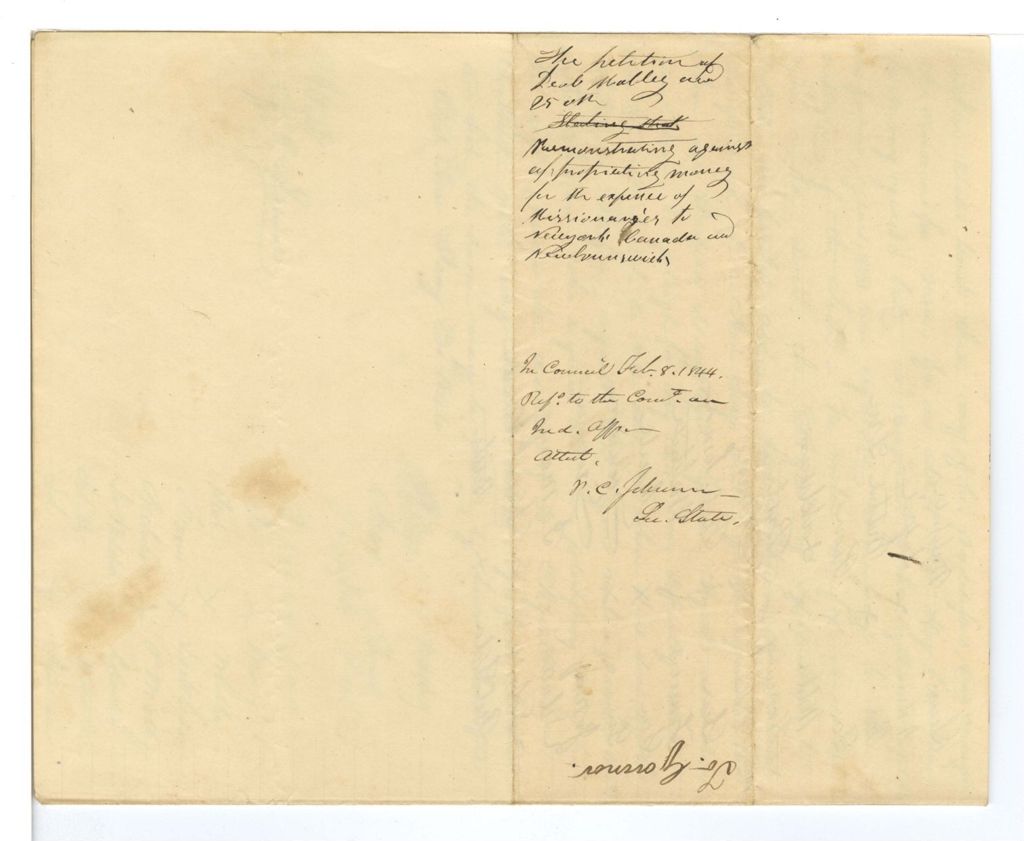 The petition of
and
25 oth
Stating that
Remonstrating against
appropriating money
for the expence of
Missionaries to
Newyork Canada and
Newbrunswick
In Council Feb. 8. 1844.
Refd. to the Comt. on
Ind. Affrs
Attest,
P. C. Johnson
Sec. State.
To Governor.